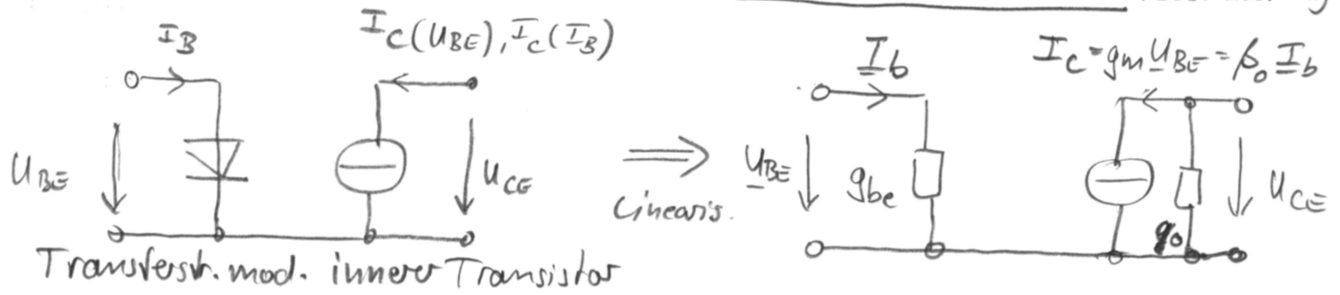 I_B
I_C(U_BE), I_C(I_B)
U_BE
U_CE
Transferstr. mod. innerer Transistor
⟹
Linearis.
I_b
I_C = gm U_BE = β_0 I_b
U_BE
g_be
g_0
U_CE